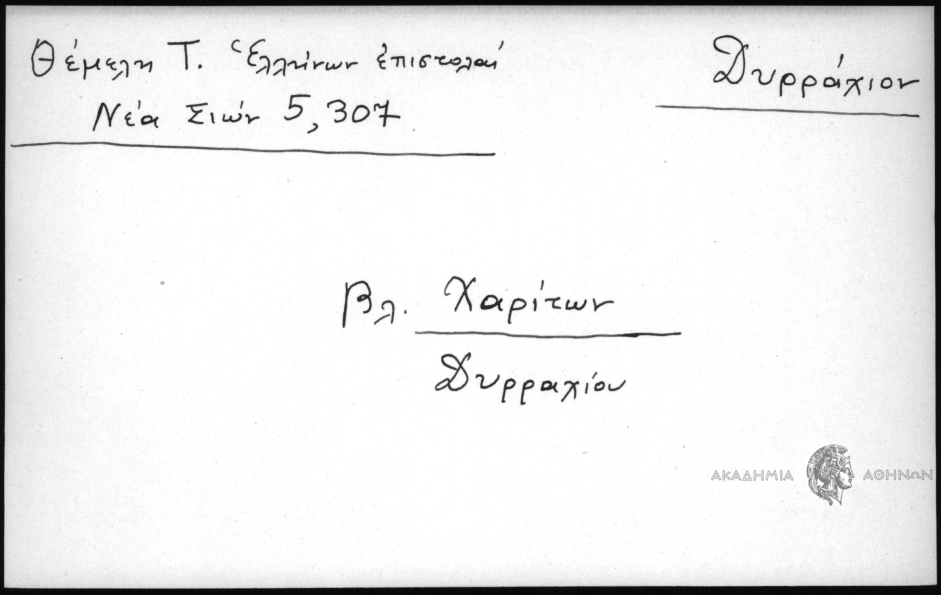 Θέμελη Τ. Ἑλλήνων ἐπιστολαί
Νέα Σιών 5, 307
Δυρράχιον
Βλ. Χαρίτων
Δυρραχίου
ΑΚΑΔΗΜΙΑ ΑΘΗΝΩΝ